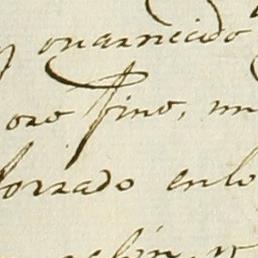 guarnecido
oro fino, un
forrado enlo